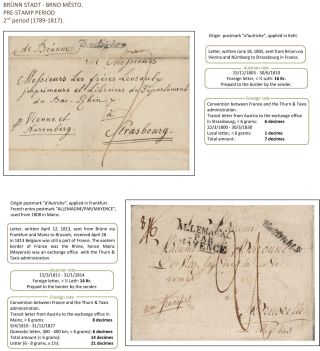 BRÜNN STADT - BRNO MĚSTO.
PRE-STAMP PERIOD
2ND period (1789-1817).
de Brünne
Monsieur
A Messieurs
Messieurs les freres Levrault
imprimeurs et Libraires du Département
du Bas-Rhin
p Vienne et
Nuremberg.
à Strasbourg
Origin postmark "d'autriche", applied in Kehl.
Letter, written June 18, 1805, sent from Brünn via
Vienna and Nürnberg to Strasbourg in France.
Austrian rate
15/11/1803 - 30/6/1810
Foreign letter, < ½ Loth: 16 Kr.
Prepaid to the border by the sender.
Foreign rate
Convention between France and the Thurn & Taxis
administration.
Transit letter from Austria to the exchange office
in Strasbourg, < 6 grams: 6 decimes
22/3/1800 - 30/3/1830
Local letter, < 6 grams: 1 decime
Total amount: 7 decimes
Origin postmark "d'Autriche", applied in Frankfurt.
French entry postmark "ALLEMAGNE/PAR/MAYENCE",
used from 1808 in Mainz.
Letter, written April 12, 1813, sent from Brünn via
Frankfurt and Mainz to Brussels, received April 20.
In 1813 Belgium was still a part of France. The eastern
border of France was the Rhine, hence Mainz
(Mayence) was an exchange office with the Th. &
Taxis administration.
Austrian rate
15/3/1811 - 31/1/1814
Foreign letter, < ½ Loth: 14 Kr.
Prepaid to the border by the sender.
Foreign rate
Convention between France and the Thurn & Taxis
administration.
Transit letter from Austria to the exchange office in
Mainz, < 6 grams: 8 decimes
9/4/1810 - 31/12/1827
Domestic letter, 300 - 400 km, < 6 grams: 6 decimes
Total amount (< 6 grams): 14 decimes
Letter (6 - 8 grams, x 1½): 21 decimes
ALLEMAGNE
MAYENCE